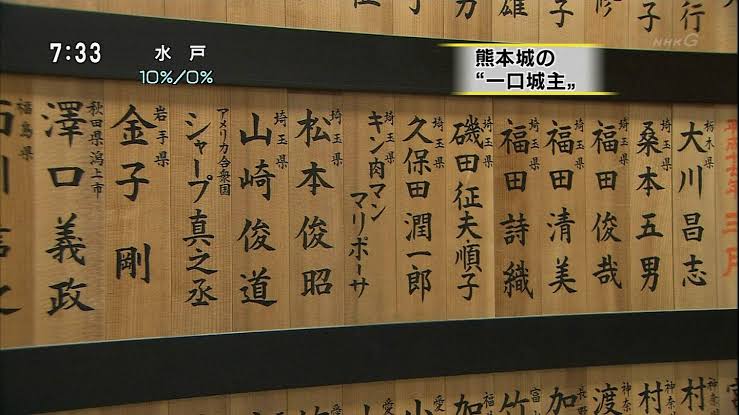 7:33 水戸
10%/0%
NHK G
熊本城の
“一口城主„
子
行
三月
栃木県 大川昌志
埼玉県 桑本五男
埼玉県 福田俊哉
埼玉県 福田清美
埼玉県 福田詩織
埼玉県 磯田征夫・順子
埼玉県 久保田潤一郎
埼玉県 キン肉マン マリポーサ
埼玉県 松本俊昭
埼玉県 山崎俊道
アメリカ合衆国 シャープ真之丞
岩手県 金子剛
秋田県潟上市 澤口義政
福島県
村
神奈 村
神奈 渡
長野 加
富 竹
福 加
愛 小